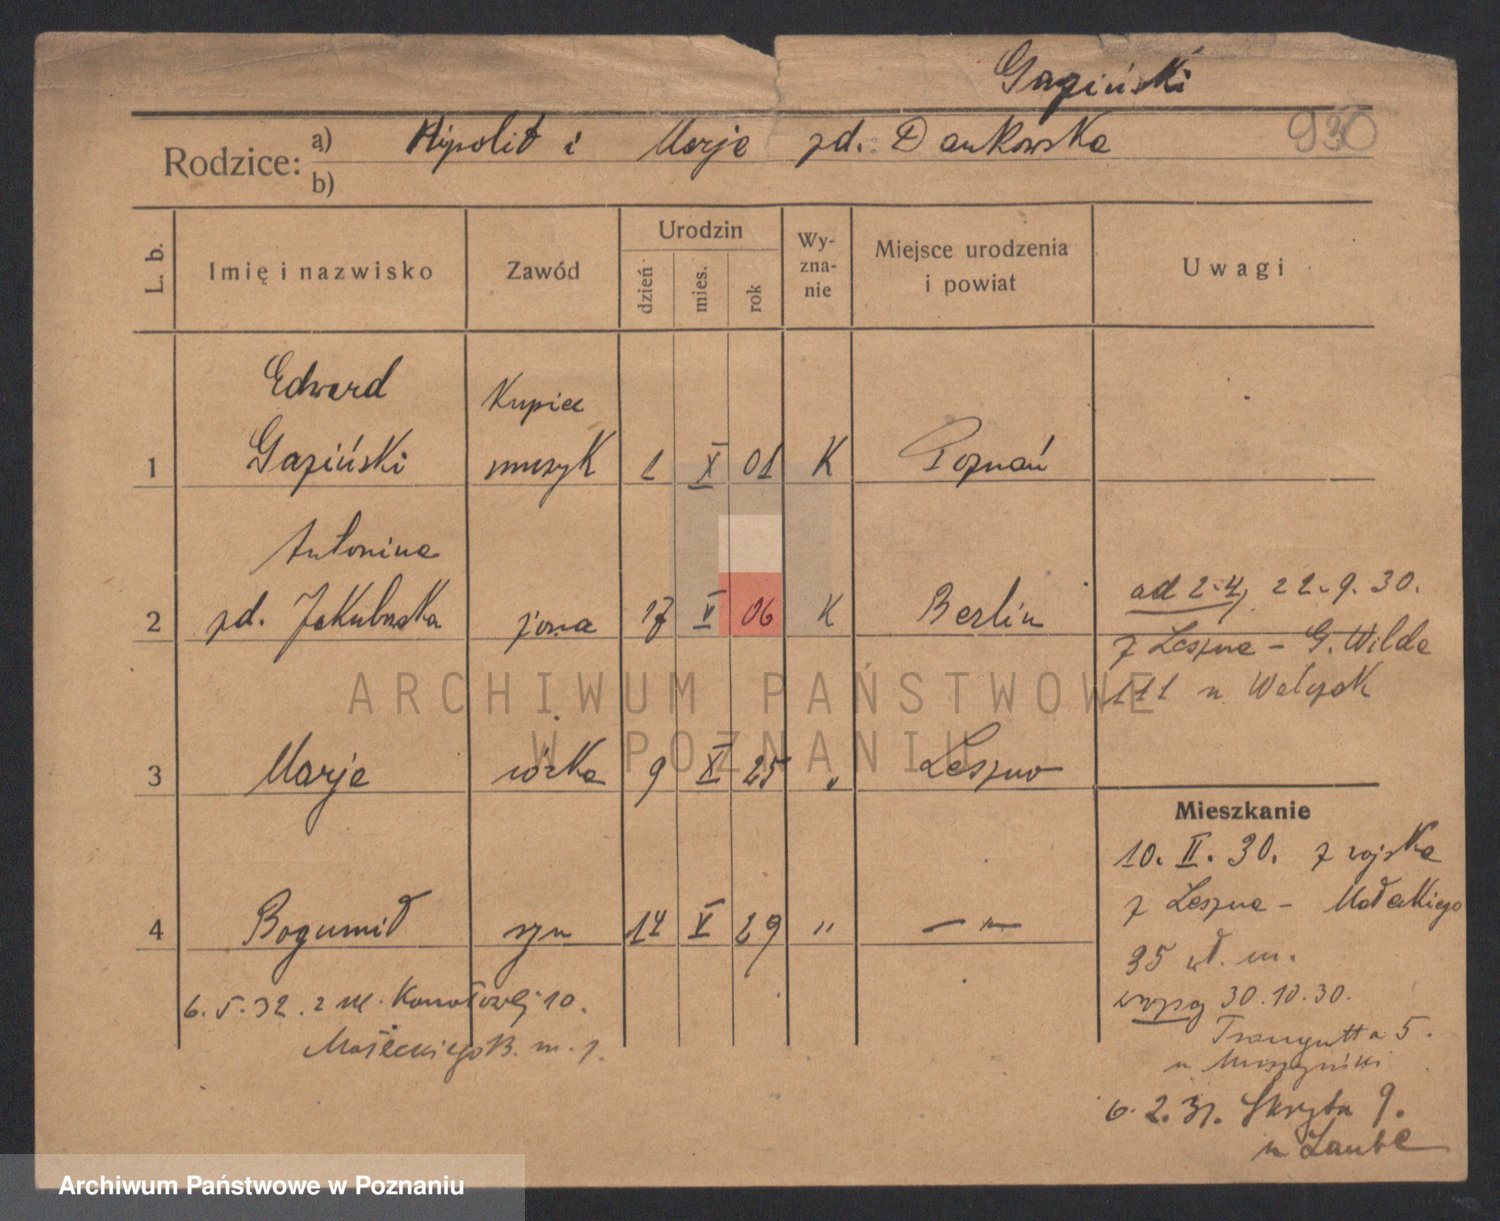 Gaziński
930
Rodzice: a) Hipolit i Marja zd. Dankowska
b)
L. b. Imię i nazwisko Zawód Urodzin dzień mies. rok Wy-zna-nie Miejsce urodzenia i powiat Uwagi
Edward Kupiec
1 Gaziński muzyk 1 X 01 K Poznań
Antonina
2 zd. Jakubowska żona 17 V 06 K Berlin
ad 2-4, 22.9.30.
z Leszna - G. Wilda
111 u Walczak
3 Marja córka 9 X 25 " Leszno
Mieszkanie
10. II. 30. z wojska
z Leszna - Małeckiego
35 wł. m.
4 Bogumił syn 14 V 29 " — " —
30.10.30.
Traugutta 5.
u
6. 2. 31. Skryta 9.
u Laube
6. 5. 32. z ul. 10.
Małeckiego
ARCHIWUM PAŃSTWOWE
W POZNANIU
Archiwum Państwowe w Poznaniu